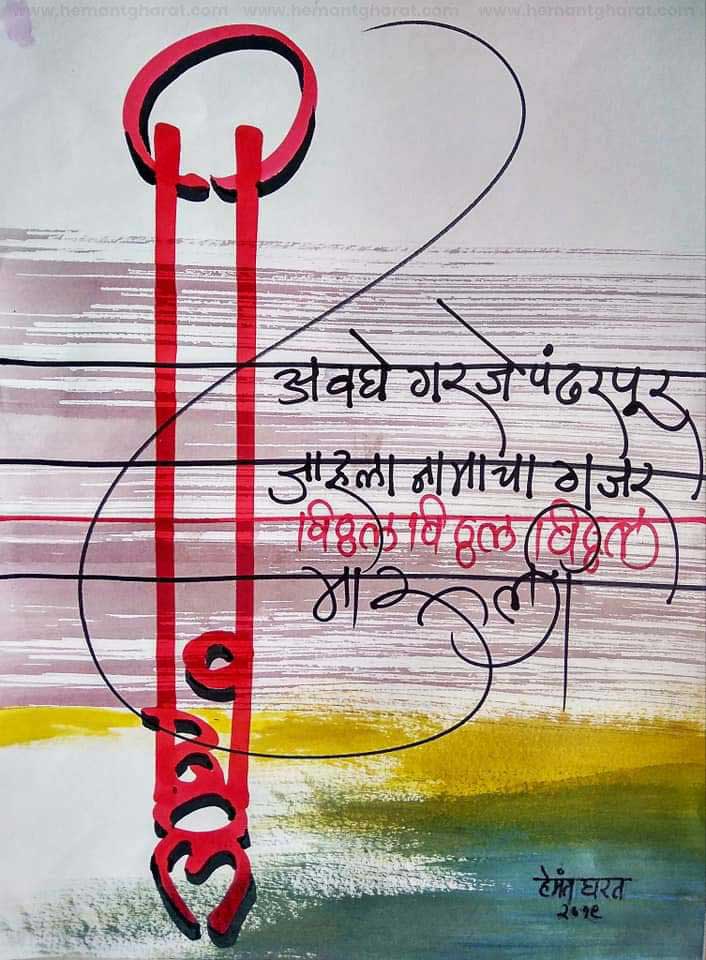 www.hemantgharat.com www.hemantgharat.com www.hemantgharat.com
अवघे गरजे पंढरपूर
जाहला नामाचा गजर
विठ्ठल विठ्ठल विठ्ठल
माऊली
हेमंत घरत
२०१९